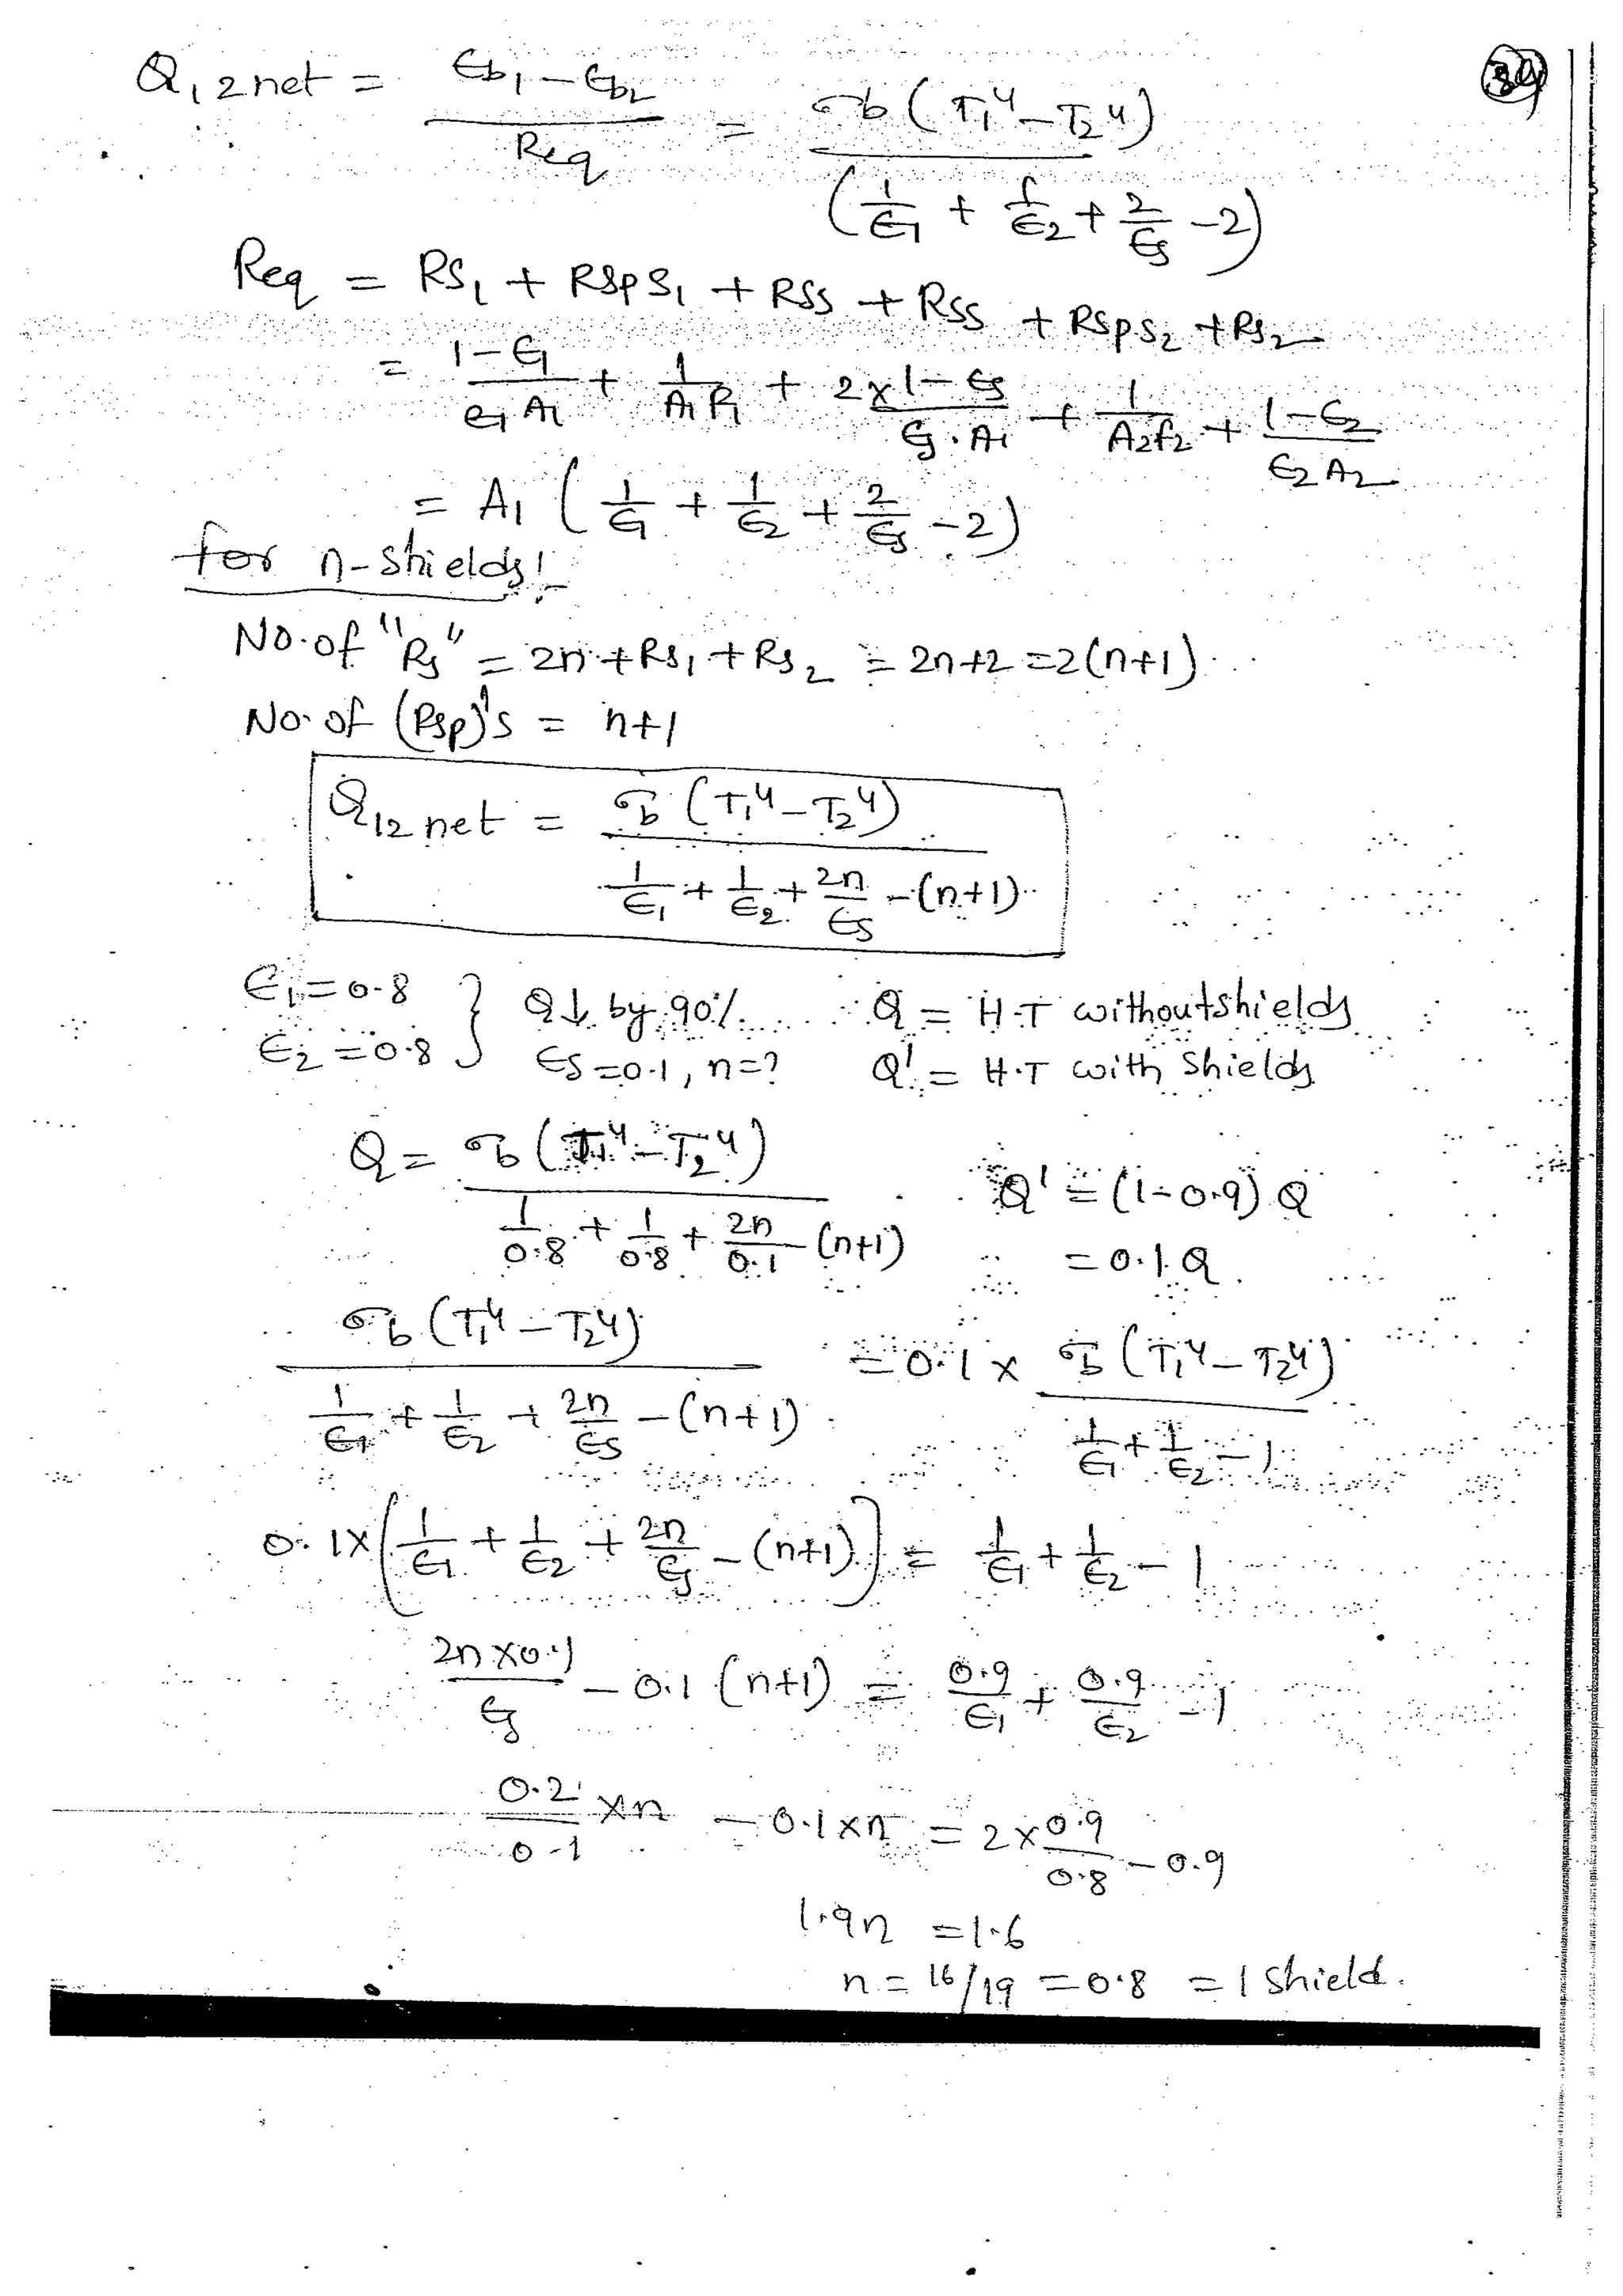 39
Q12net = Eb1 - Eb2 / Req = σb (T1⁴ - T2⁴) / (1/ϵ1 + 1/ϵ2 + 2/ϵs - 2)
Req = RS1 + RSPS1 + RSS + RSS + RSPS2 + RS2
= 1-ϵ1 / ϵ1 A1 + 1 / A1 F1 + 2 x 1-ϵs / ϵs . A1 + 1 / A2 F2 + 1-ϵ2 / ϵ2 A2
= A1 (1/ϵ1 + 1/ϵ2 + 2/ϵs - 2)
for n-shields:-
No. of "Rs" = 2n + RS1 + RS2 = 2n+2 = 2(n+1)
No. of (Rsp)'s = n+1
Q12net = σb (T1⁴ - T2⁴) / 1/ϵ1 + 1/ϵ2 + 2n/ϵs - (n+1)
ϵ1 = 0.8 } Q↓ by 90% Q = H.T without shields
ϵ2 = 0.8 ϵs = 0.1, n = ? Q' = H.T with shields
Q = σb (T1⁴ - T2⁴) / 1/0.8 + 1/0.8 + 2n/0.1 - (n+1) Q' = (1-0.9) Q
= 0.1 Q.
σb (T1⁴ - T2⁴) / 1/ϵ1 + 1/ϵ2 + 2n/ϵs - (n+1) = 0.1 x σb (T1⁴ - T2⁴) / 1/ϵ1 + 1/ϵ2 - 1
0.1x[1/ϵ1 + 1/ϵ2 + 2n/ϵs - (n+1)] = 1/ϵ1 + 1/ϵ2 - 1
2n x 0.1 / ϵs - 0.1 (n+1) = 0.9/ϵ1 + 0.9/ϵ2 - 1
0.2/0.1 x n - 0.1 x n = 2 x 0.9/0.8 - 0.9
1.9n = 1.6
n = 16/19 = 0.8 = 1 shield.